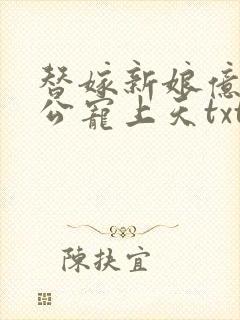 替嫁新娘億
公寵上天txt
陳扶宜